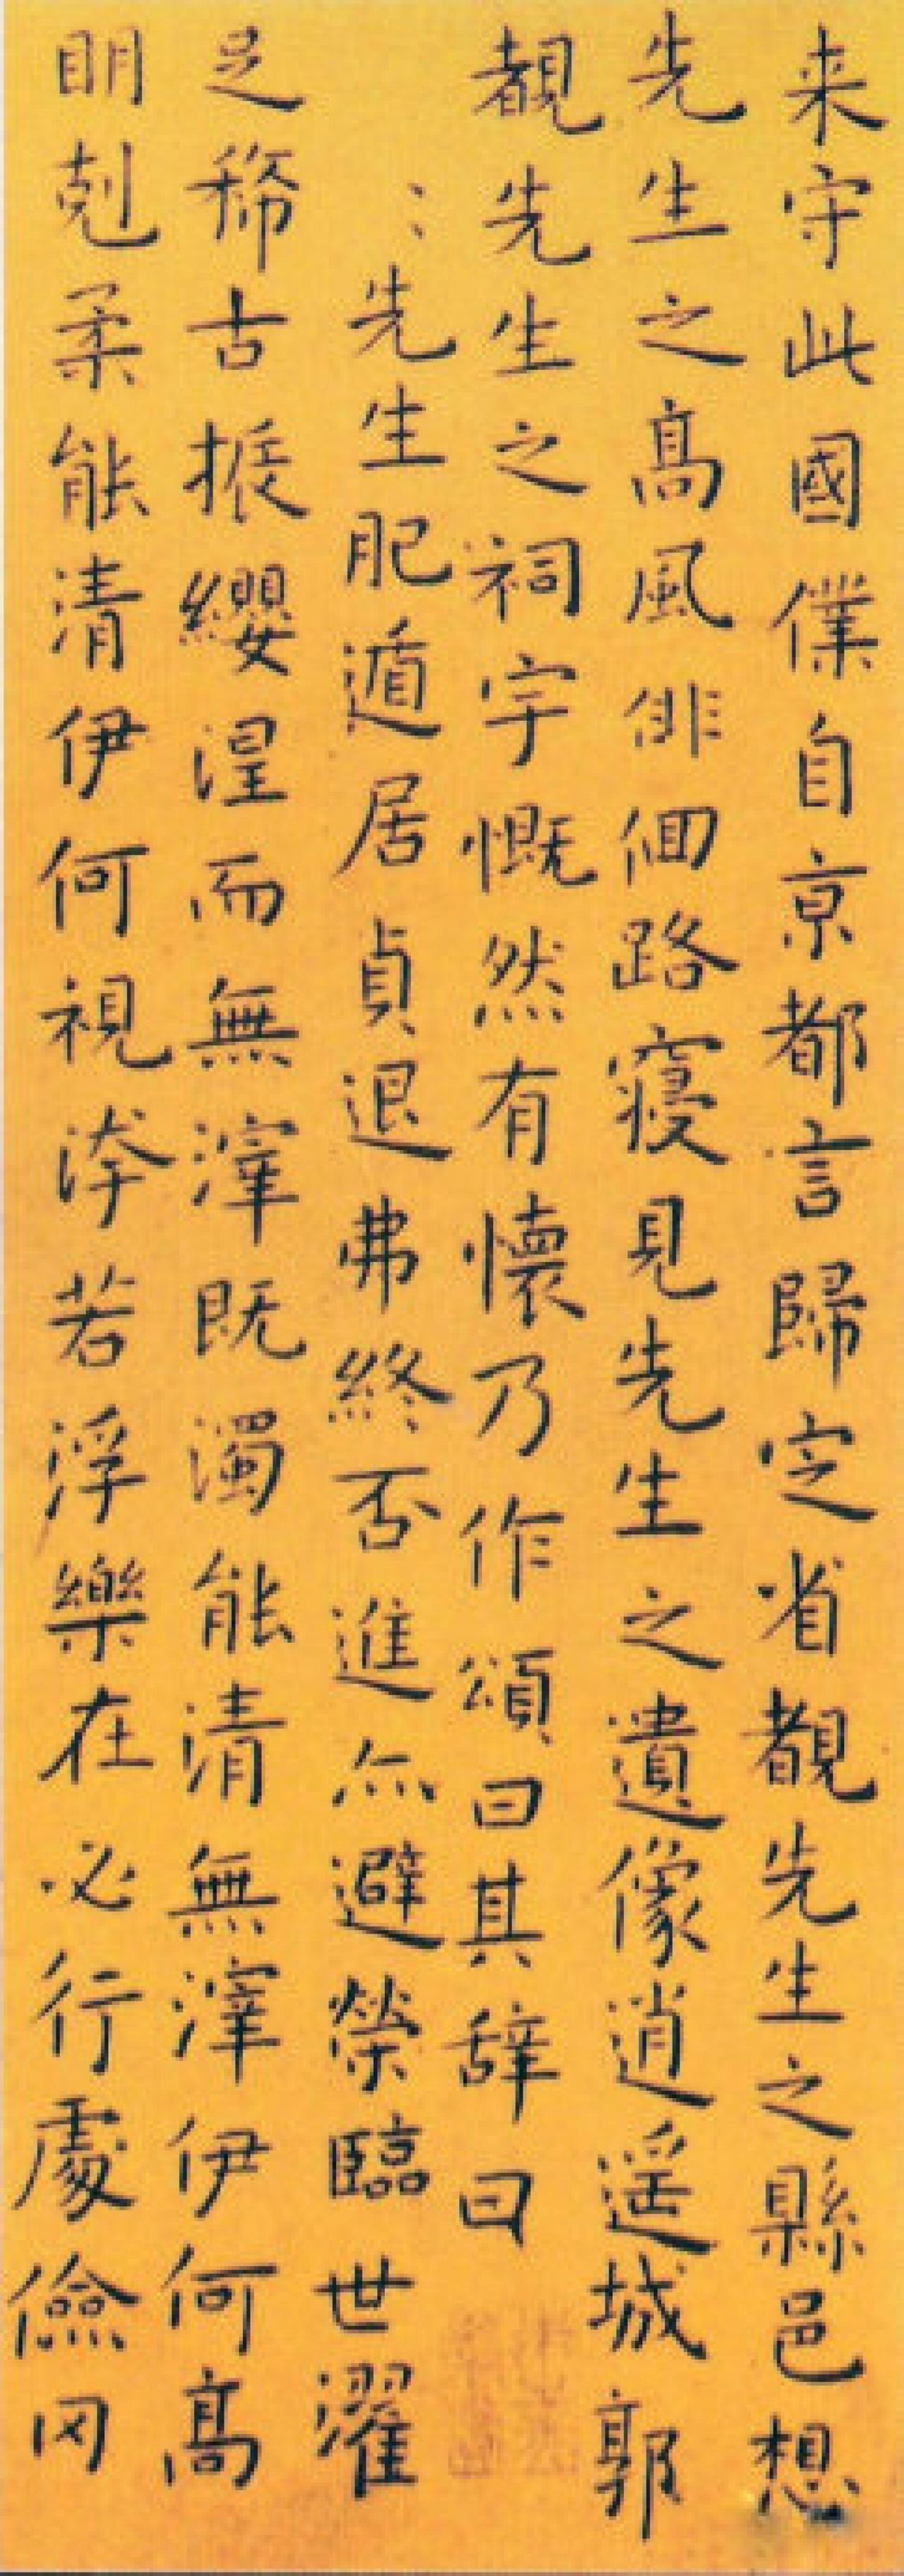 来守此國僕自京都言歸定省覩先生之縣邑想
先生之高風俳佪路寝見先生之遺像逍遥城郭
覩先生之祠宇慨然有懐乃作頌曰其辞曰
：先生肥遁居貞退弗終否進亦避榮臨世濯
足稀古振纓涅而無滓既濁能清無滓伊何髙
明剋柔能清伊何視洿若浮樂在必行處儉罔